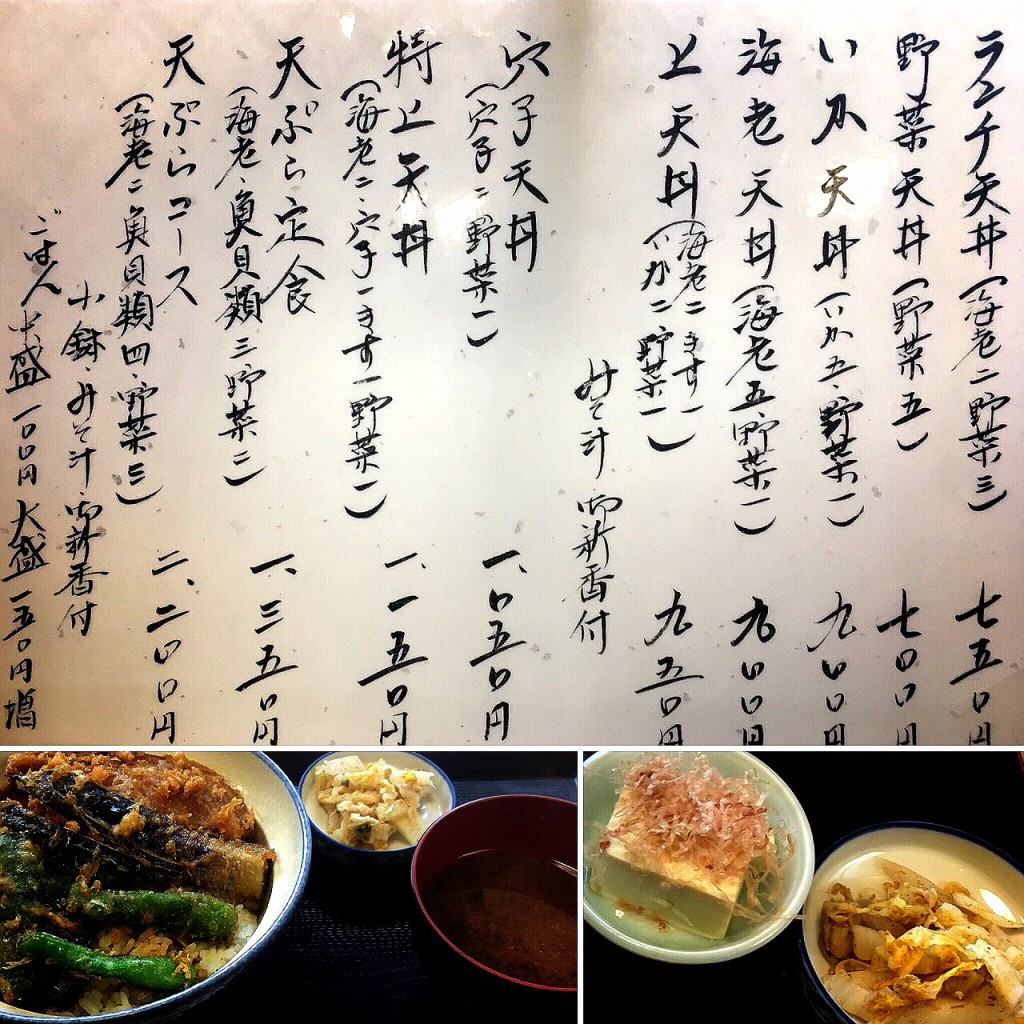 ランチ天丼(海老二野菜三) 七五〇円
野菜天丼(野菜五) 七〇〇円
いか天丼(いか五・野菜一) 九〇〇円
海老天丼(海老五・野菜一) 九〇〇円
上天丼(海老二きす一いか二野菜一) 九五〇円
みそ汁御新香付
穴子天丼(穴子二野菜一) 一、〇五〇円
特上天丼(海老二・穴子一きす一野菜一) 一、一五〇円
天ぷら定食(海老二・魚貝類三野菜二) 一、三五〇円
天ぷらコース(海老二魚貝類四・野菜三) 二、二〇〇円
小鉢・みそ汁・御新香付
ごはん中盛一〇〇円大盛一五〇円増